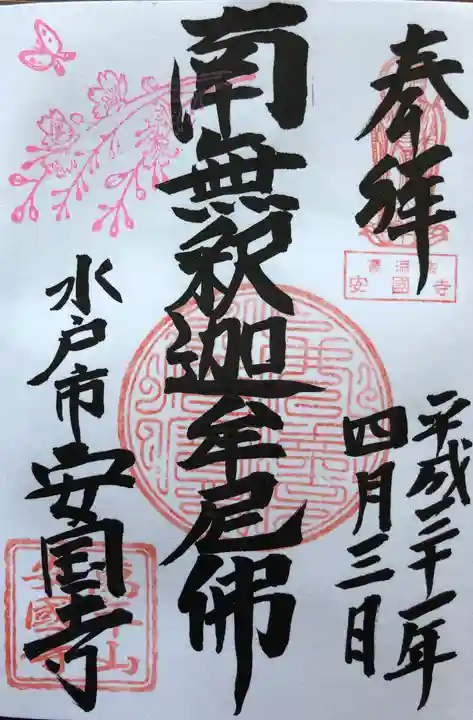 奉拝
安國寺
平成三十一年
四月三日
南無釈迦牟尼佛
水戸市 安国寺